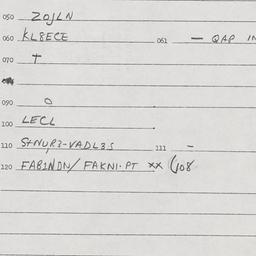 050 ZOJLN
060 KL8ECE 061 — QAP IN
070 †
090 O
100 LECL
110 111 –
120 FABINDN/ FAKNI·PT xx (108